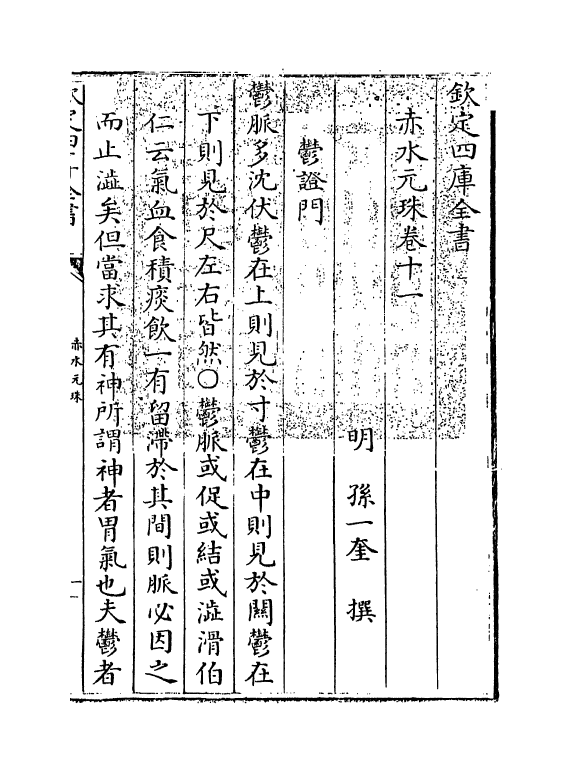 欽定四庫全書
赤水元珠卷十一
明 孫一奎 撰
鬱證門
鬱脈多沈伏鬱在上則見於寸鬱在中則見於關鬱在
下則見於尺左右皆然○鬱脈或促或結或澁滑伯
仁云氣血食積痰飲一有留滯於其間則脈必因之
而止澁矣但當求其有神所謂神者胃氣也夫鬱者
欽定四庫全書
赤水元珠
一